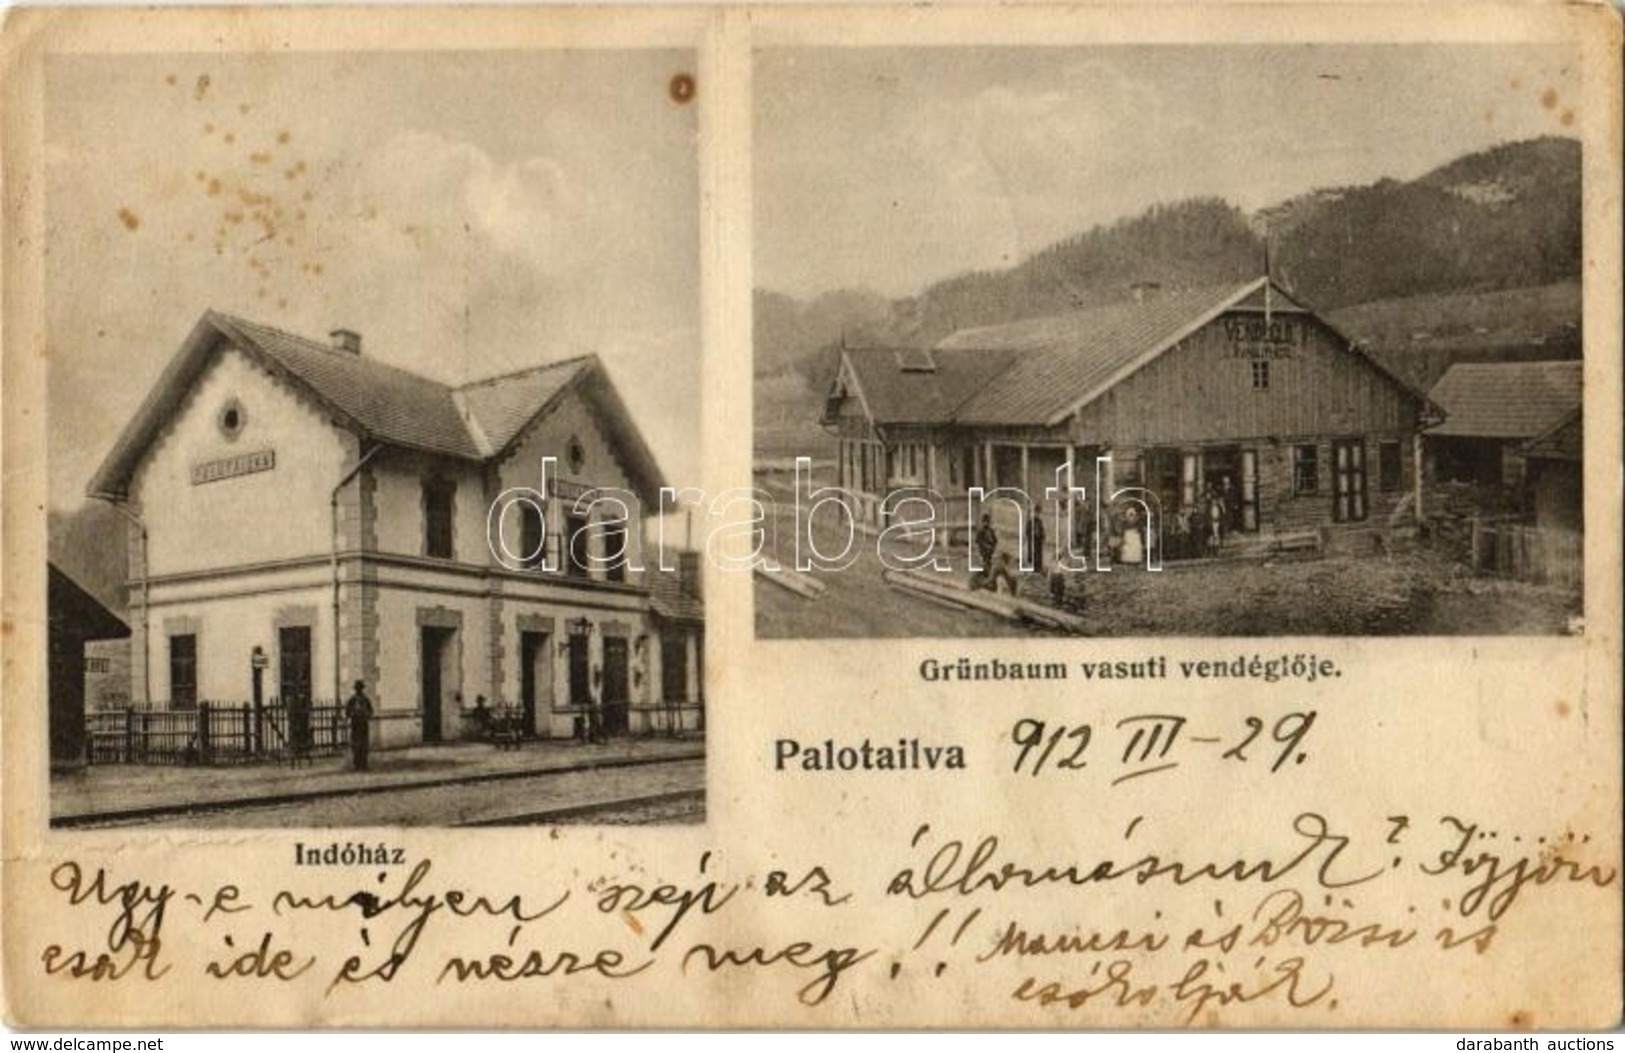 PALOTAILVA
VENDÉGLŐ
Indóház
Grünbaum vasuti vendéglője.
Palotailva 912 III-29.
Ugy-e milyen szép az állomásunk? Jöjjön
csak ide és nézze meg!! Mancsi és Börzsi is
csókolják.
darabanth
www.delcampe.net
darabanth auctions